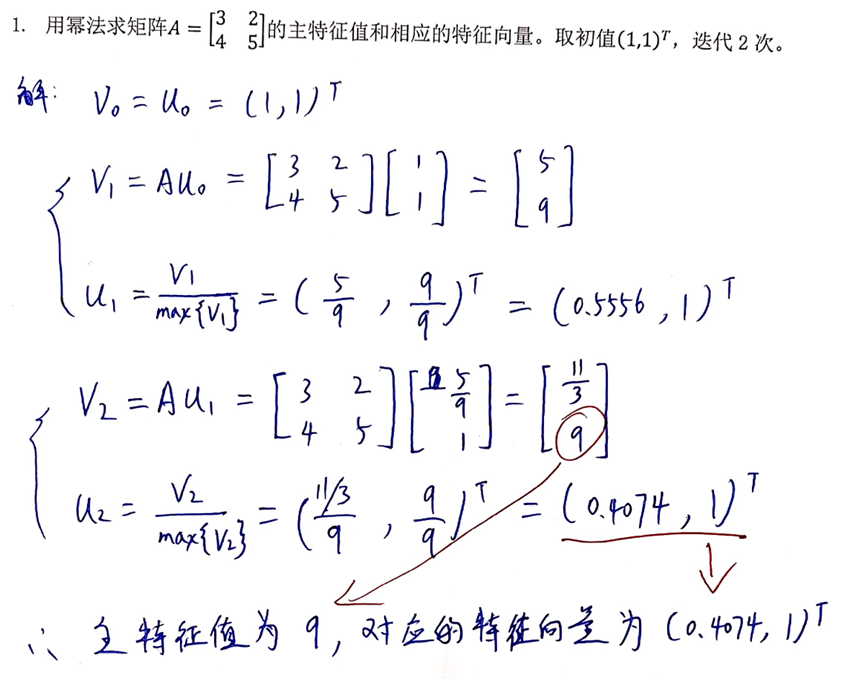 1. 用幂法求矩阵A = [3 2; 4 5]的主特征值和相应的特征向量。取初值(1,1)ᵀ，迭代 2 次。
解: V₀ = U₀ = (1,1)ᵀ
V₁ = AU₀ = [3 2; 4 5][1; 1] = [5; 9]
U₁ = V₁/max{V₁} = (5/9, 9/9)ᵀ = (0.5556, 1)ᵀ
V₂ = AU₁ = [3 2; 4 5][5/9; 1] = [11/3; 9]
U₂ = V₂/max{V₂} = ((11/3)/9, 9/9)ᵀ = (0.4074, 1)ᵀ
∴ 主特征值为 9, 对应的特征向量为 (0.4074, 1)ᵀ